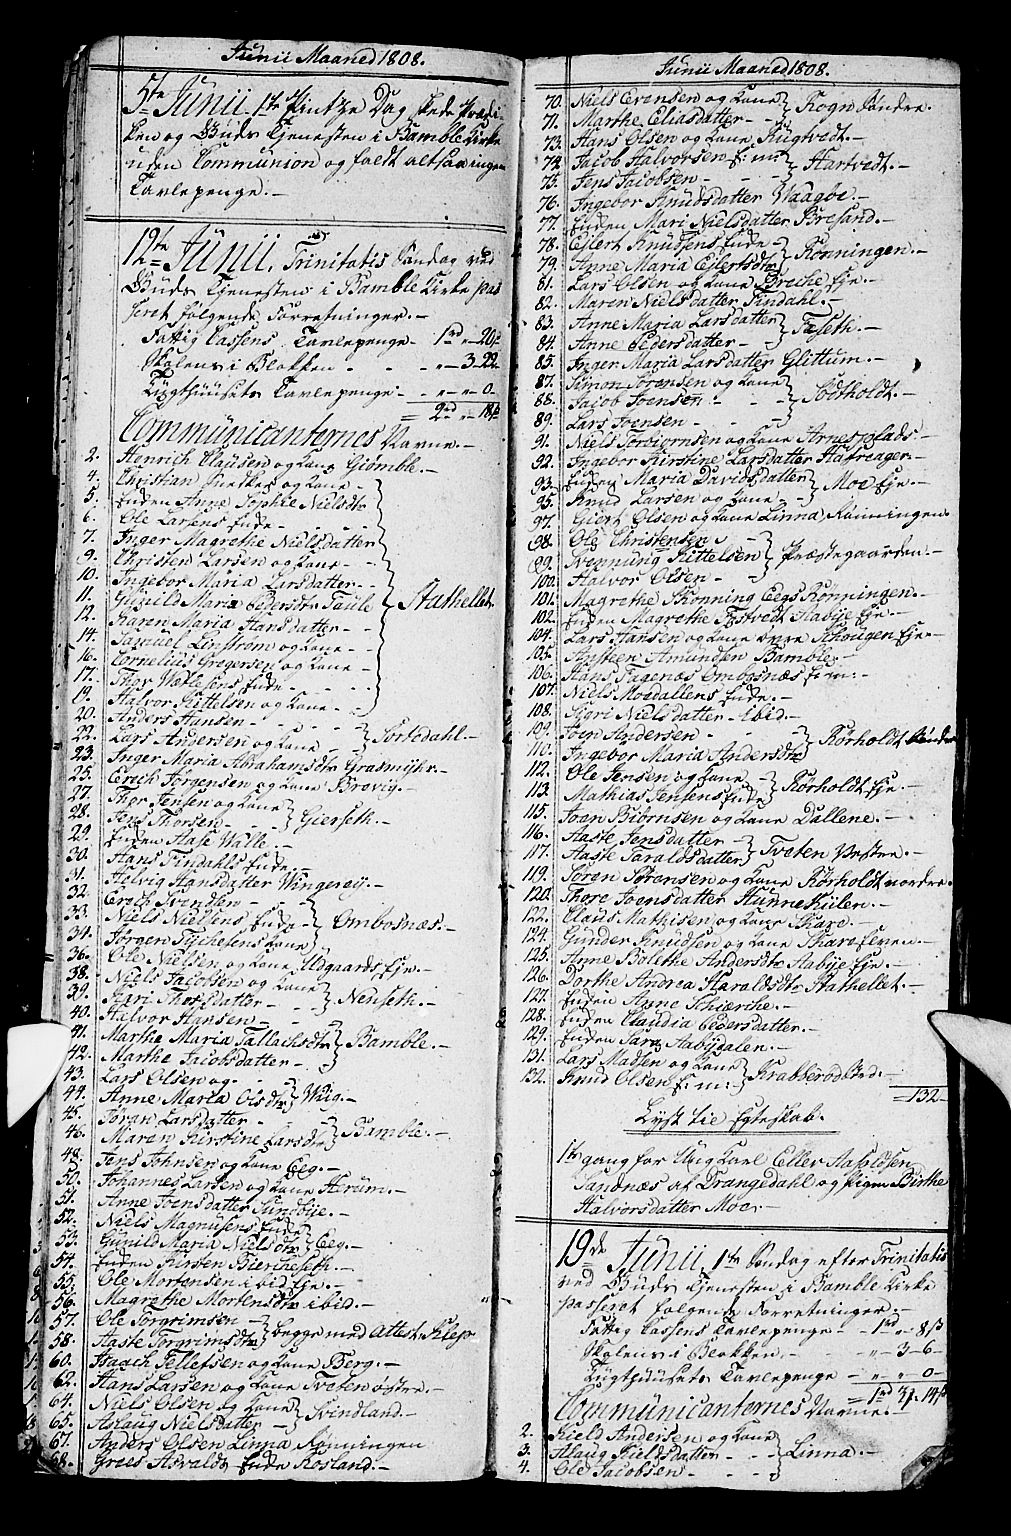 Junii Maaned 1808.
5te Junii 1te Pintze Dag skede Prædi-
ken og Guds Tjenesten i Bamble Kirke
uden Communion og faldt altsaa ingen
Tavlepenge.-
12te Junii, Trinitatis Søndag ved
Guds Tjenesten i Bamble Kirke pas
seret følgende Forretninger.-
Fattig Cassens Tavlepenge - 1rd " 20
Skolens i Blokken - - - " - 3. 22
Tugthuusets Tavlepenge - " - " - 0-
= 2rd " 18
Communicanternes Navne.-
2. Henrich Clausen og Kone Giømble.-
4. Christian og Kone -
5. Enken Anne Sophie Nielsdtr
6. Ole Larsens Enke -
7. Inger Magrethe Nielsdatter
9. Christen Larsen og Kone -
10. Ingebor Maria Larsdatter -
11. Gunild Maria Pedersdtr Taule Stathellet
12. Karen Maria Hansdatter -
14. Samuel Linstrøm og Kone -
16. Cornelius Gregersen og Kone
17. Thor Enke -
19. Halvor Kittelsen og Kone -
20. Anders Hansen -
22. Lars Andersen og Kone Tortedahl.-
23. Inger Maria Abrahamsdtr Grasmyhr.-
25. Erich Jørgensen og Kone Brevig.-
27. Thor Jensen og Kone
28. Jens Thorsen - Gierseth.-
29. Enken Aase Valle.-
30. Hans Tindahls Enke -
31. Helvig Hansdatter Vingereÿ.-
32. Erich Svendsen -
33. Niels Nielsens Enke Ombosnæs.-
34. Jørgen Tychesens Kone
36. Ole Nielsen og Kone Uldgaards Eje.-
38. Niels Jacobsen og Kone
39. Siri Thorsdatter - Nenseth.-
40. Halvor Hansen -
41. Marthe Maria Tallachsdtr Bamble.-
42. Marthe Jacobsdatter -
43. Lars Olsen og -
44. Anne Maria Olsdtr Viig.-
45. Jøran Larsdatter -
46. Maren Kirstine Larsdtr Bamble.-
48. Jens Johnsen og Kone Eeg.-
50. Johannes Larsen og Kone Herum.-
51. Anne Joensdatter Sundbye.-
52. Niels Magnusens Enke
53. Gunild Maria Nielsdtr Eeg.-
54. Enken Kirsten Biercheseth.-
55. Ole Mortensen ibid Eje.-
56. Magrethe Mortensdtr ibid.-
57. Ole Torgrimsen -
58. Aaste Torgrimsdtr begge med Attest
60. Isach Tellefsen og Kone Berg.-
62. Hans Larsen og Kone Tveten østre.-
64. Niels Olsen og Kone
65. Aslaug Nielsdatter - Svindland.-
67. Anders Olsen Linna Rønningen
68. Groes Asvalds Enke Rosland.-
Junii Maaned 1808.
70. Niels Evensen og Kone
71. Marthe Eliasdatter - Rogn Søndre.
73. Hans Olsen og Kone Rugtvedt.-
74. Jacob Halvorsen f: m:
75. Jens Jacobsen - Hartvedt.-
76. Ingebor Knudsdatter Vaagøe.-
77. Enken Mari Nielsdatter Bresand.-
78. Ejlert Knudsens Enke
79. Anne Maria Ejlertsdtr Rønningen.-
81. Lars Olsen og Kone Brethe Eje.-
82. Maren Nielsdatter Findahl.-
83. Anne Maria Larsdatter
84. Anne Pedersdatter - Fæseth.-
85. Inger Maria Larsdatter Glittum.-
87. Simon Sørensen og Kone
88. Jacob Joensen - Todtholdt.-
89. Lars Joensen -
91. Niels Torbiornsen og Kone Arnesplads -
92. Ingebor Kirstine Larsdatter Hafreager-
93. Enken Maria Davidsdatter
95. Knud Larsen og Kone - Moe Eje.-
97. Giert Olsen og Kone Linna Rønningen
98. Ole Christensen -
99. Svennung Kittelsen Præstegaarden.-
100. Halvor Olsen -
101. Magrethe Skonning Eegs Rønningen.-
102. Enken Magrethe Tostvedt Aabye Eje.-
104. Lars Hansen og Kone øvre Schougen Eje.-
105. Anstien Amundsen Bamble.-
106. Hans Fagenæs Ombosnæs f: m:
107. Niels Moedallens Enke.-
108. Sigri Nielsdatter - ibid.-
109. Joen Andersen -
110. Ingebor Maria Andersdtr Rørholdt Søndre
112. Ole Jensen og Kone -
113. Mathias Jensens Enke Rørholdt Eje.-
115. Joen Biørnsen og Kone Dallene.-
116. Aaste Jensdatter -
117. Aaste Taraldsdatter Tveten Vestre.-
119. Søren Sørensen og Kone Rørholdt nordre
120. Thore Joensdatter Hunnekiilen.-
122. Claus Mathisen og Kone Skare.-
124. Gunder Knudsen og Kone Skarefenen.-
125. Anne Bolethe Andersdtr Aabÿe Eje.-
126. Dorthe Andrea Haraldsdtr Stathellet.-
127. Enken Anne Schierche.-
128. Enken Claudia Pedersdatter.-
129. Enken Sara Aabydalen.-
131. Lars Madsen og Kone
132. Knud Olsen f: m: Krabberød Bræd:-
=132-
Lyst til Egteskab.
1te gang for Ung Karl Eller Aasløsen
Sandnæs af Drangedahl og Pigen Birthe
Halvorsdatter Moe.-
19de Junii, 1te Søndag efter Trinitatis
ved Guds Tjenesten i Bamble Kirke
passeret følgende Forretninger.-
Fattig Cassens Tavlepenge - 1rd " 8
Skolens i Blokken.- - - " - 3 - 6-
Tugthuusets Tavlepenge - " " - 0-
= 1rd 3. 14
Communicanternes Navne.-
2. Kield Andersen og Kone
3. Aslaug Kieldsdatter - Linna.-
4. Ole Jacobsen -